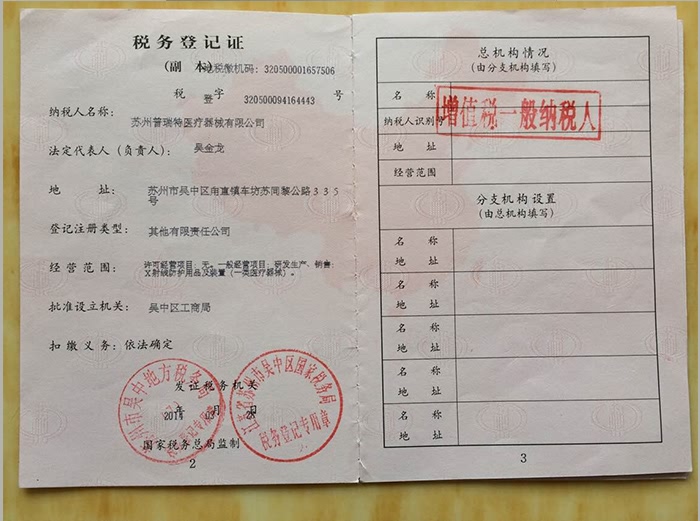 税务登记证
(副 本)
地税微机码: 320500001657506
税 字
登 320500094164443 号
纳税人名称: 苏州普瑞特医疗器械有限公司
法定代表人(负责人): 吴金龙
地 址: 苏州市吴中区甪直镇车坊苏同黎公路335
号
登记注册类型: 其他有限责任公司
经营范围: 许可经营项目: 无。一般经营项目: 研发生产、销售:
X射线防护用品及装置(一类医疗器械)。
批准设立机关: 吴中区工商局
扣缴义务: 依法确定
发证税务机关
年 月 日
国家税务总局监制
2
苏州市吴中地方税务局
税务登记专用章
江苏省苏州市吴中区国家税务局
税务登记专用章
总机构情况
(由分支机构填写)
名 称
纳税人识别号
地 址
经营范围
增值税一般纳税人
分支机构设置
(由总机构填写)
名 称
地 址
名 称
地 址
名 称
地 址
名 称
地 址
名 称
地 址
3